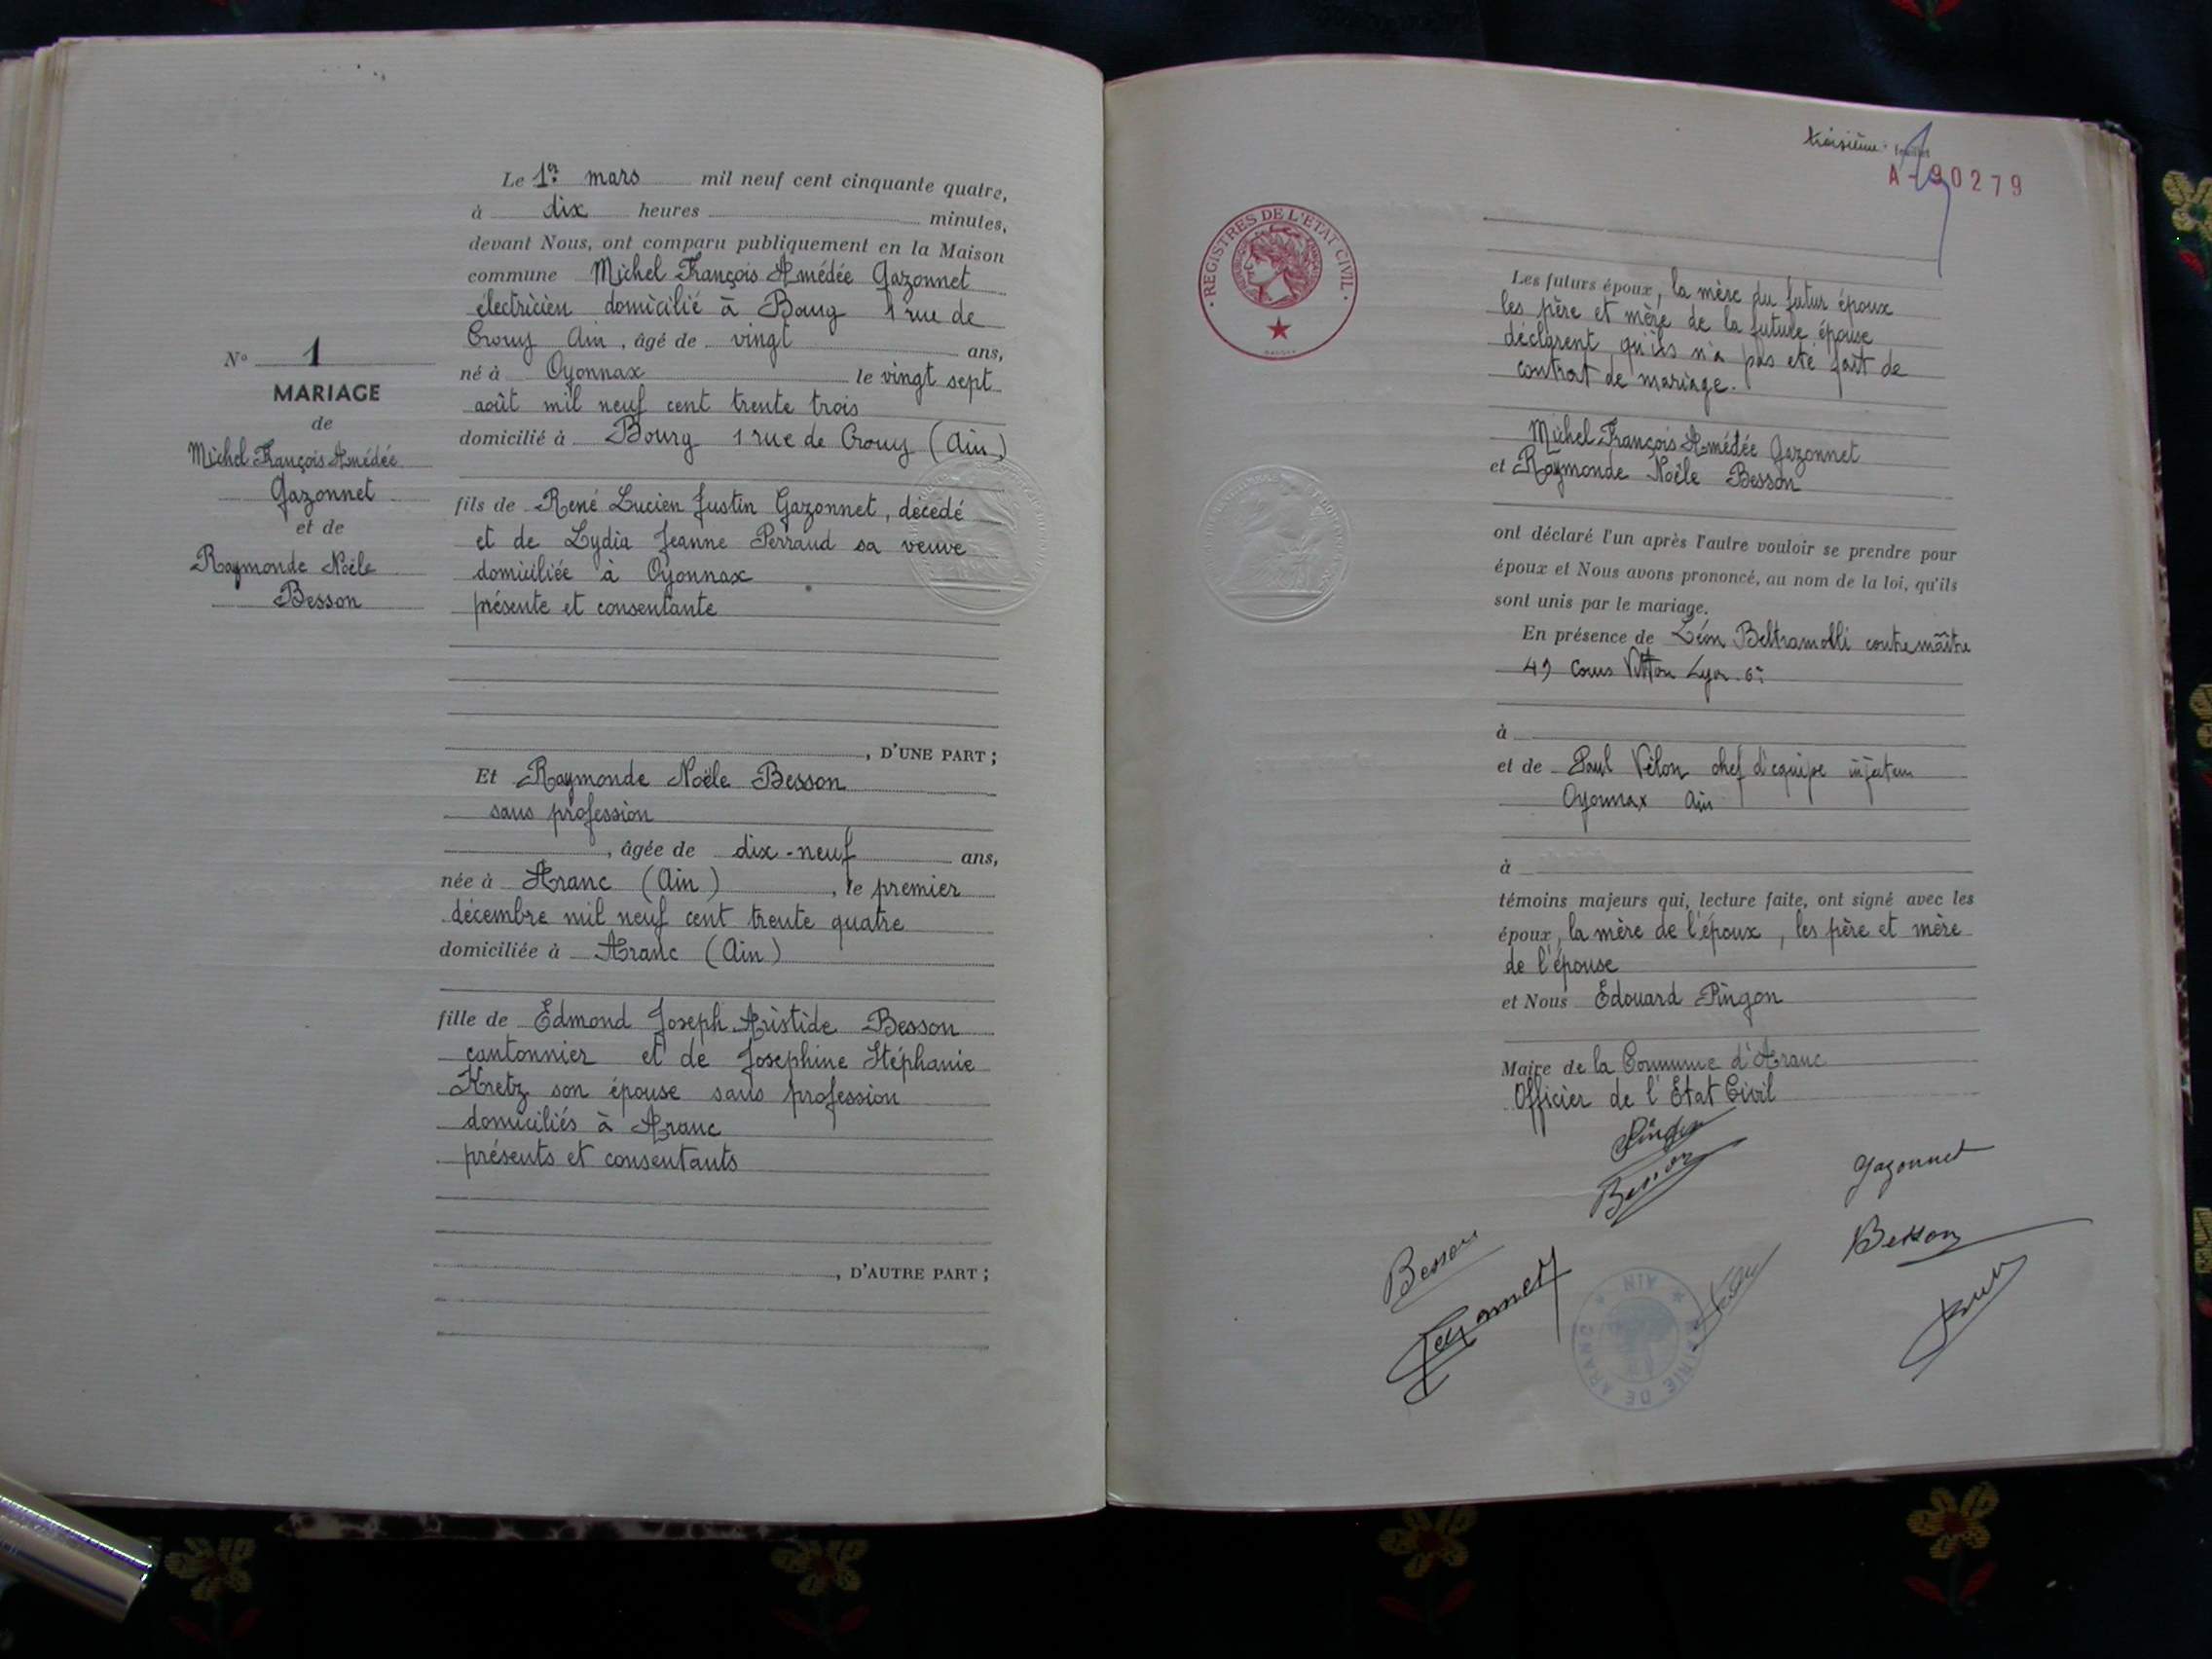 Le 1er mars mil neuf cent cinquante quatre,
à dix heures minutes,
devant Nous, ont comparu publiquement en la Maison
commune Michel François Amédée Gazonnet
électricien domicilié à Bourg 1 rue de
Crouy Ain, âgé de vingt ans,
né à Oyonnax le vingt sept
août mil neuf cent trente trois
domicilié à Bourg 1 rue de Crouy (Ain)
fils de René Lucien Justin Gazonnet, décédé
et de Lydia Jeanne Perraud sa veuve
domiciliée à Oyonnax
présente et consentante
, D'UNE PART ;
Et Raymonde Noële Besson
sans profession
, âgée de dix-neuf ans,
née à Aranc (Ain), le premier
décembre mil neuf cent trente quatre
domiciliée à Aranc (Ain)
fille de Edmond Joseph Aristide Besson
cantonnier et de Joséphine Stéphanie
Kretz son épouse sans profession
domiciliés à Aranc
présents et consentants
, D'AUTRE PART ;
N° 1
MARIAGE
de
Michel François Amédée
Gazonnet
et de
Raymonde Noële
Besson
troisième feuillet
A - 90279
REGISTRES DE L'ETAT CIVIL
Les futurs époux, la mère du futur époux
les père et mère de la future épouse
déclarent qu'ils n'a pas été fait de
contrat de mariage.
Michel François Amédée Gazonnet
et Raymonde Noële Besson
ont déclaré l'un après l'autre vouloir se prendre pour
époux et Nous avons prononcé, au nom de la loi, qu'ils
sont unis par le mariage.
En présence de Léon Beltramelli contremaître
49 Cours Vitton Lyon 6e
à
et de Paul Vélon chef d'équipe injecteur
Oyonnax Ain
à
témoins majeurs qui, lecture faite, ont signé avec les
époux, la mère de l'époux, les père et mère
de l'épouse
et Nous Edouard Pingon
Maire de la Commune d'Aranc
Officier de l'Etat Civil
Pingon
Besson
Gazonnet
Besson
Besson
Gazonnet
MAIRIE DE ARANC * AIN *